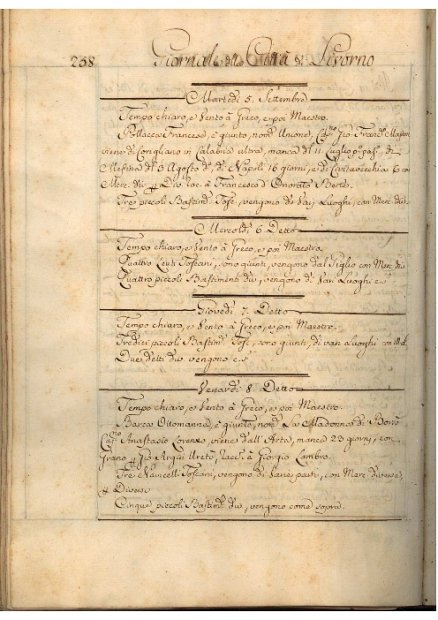 258 Giornale della Città di Livorno
Martedì 5. Settembre
Tempo chiaro, e Vento à Greco, e poi Maestro.
Pollacca Francese, è giunto, nom.
viene di Conigliano in Calabria ultra, manca di 11 Luglio
Messina di 3 Agosto di Napoli 16 giorni, e di Civitavecchia 6 con
Merc. di à Francesco
Tre piccoli Bastim. Tosc. vengono di Varj Luoghi, con Merc. div.
Mercoledì 6. Detto
Tempo chiaro, e Vento à Greco, e poi Maestro.
Quattro Leuti Toscani, sono giunti, vengono dal Giglio con Merc. div.
Quattro piccoli Bastimenti div. vengono di Varj Luoghi e.s.
Giovedì 7. Detto
Tempo chiaro, e Vento à Greco, e poi Maestro.
Tredici piccoli Bastim. Tosc. sono giunti, di varj Luoghi con
Due detti div. vengono e.s.
Venardì 8. Detto
Tempo chiaro, e Vento à Greco, e poi Maestro.
Barca Ottomanna, è giunto, nom. La Madonna di
Cap. Anastasio Lorenzo, viene dall'Arta, manca 23 giorni, con
Grano à Giorgio Lambro.
Tre Navicell. Toscani, vengono di Varie parti, con Merc. diverse,
Diversi
Cinque piccoli Bastim. div. vengono come sopra.